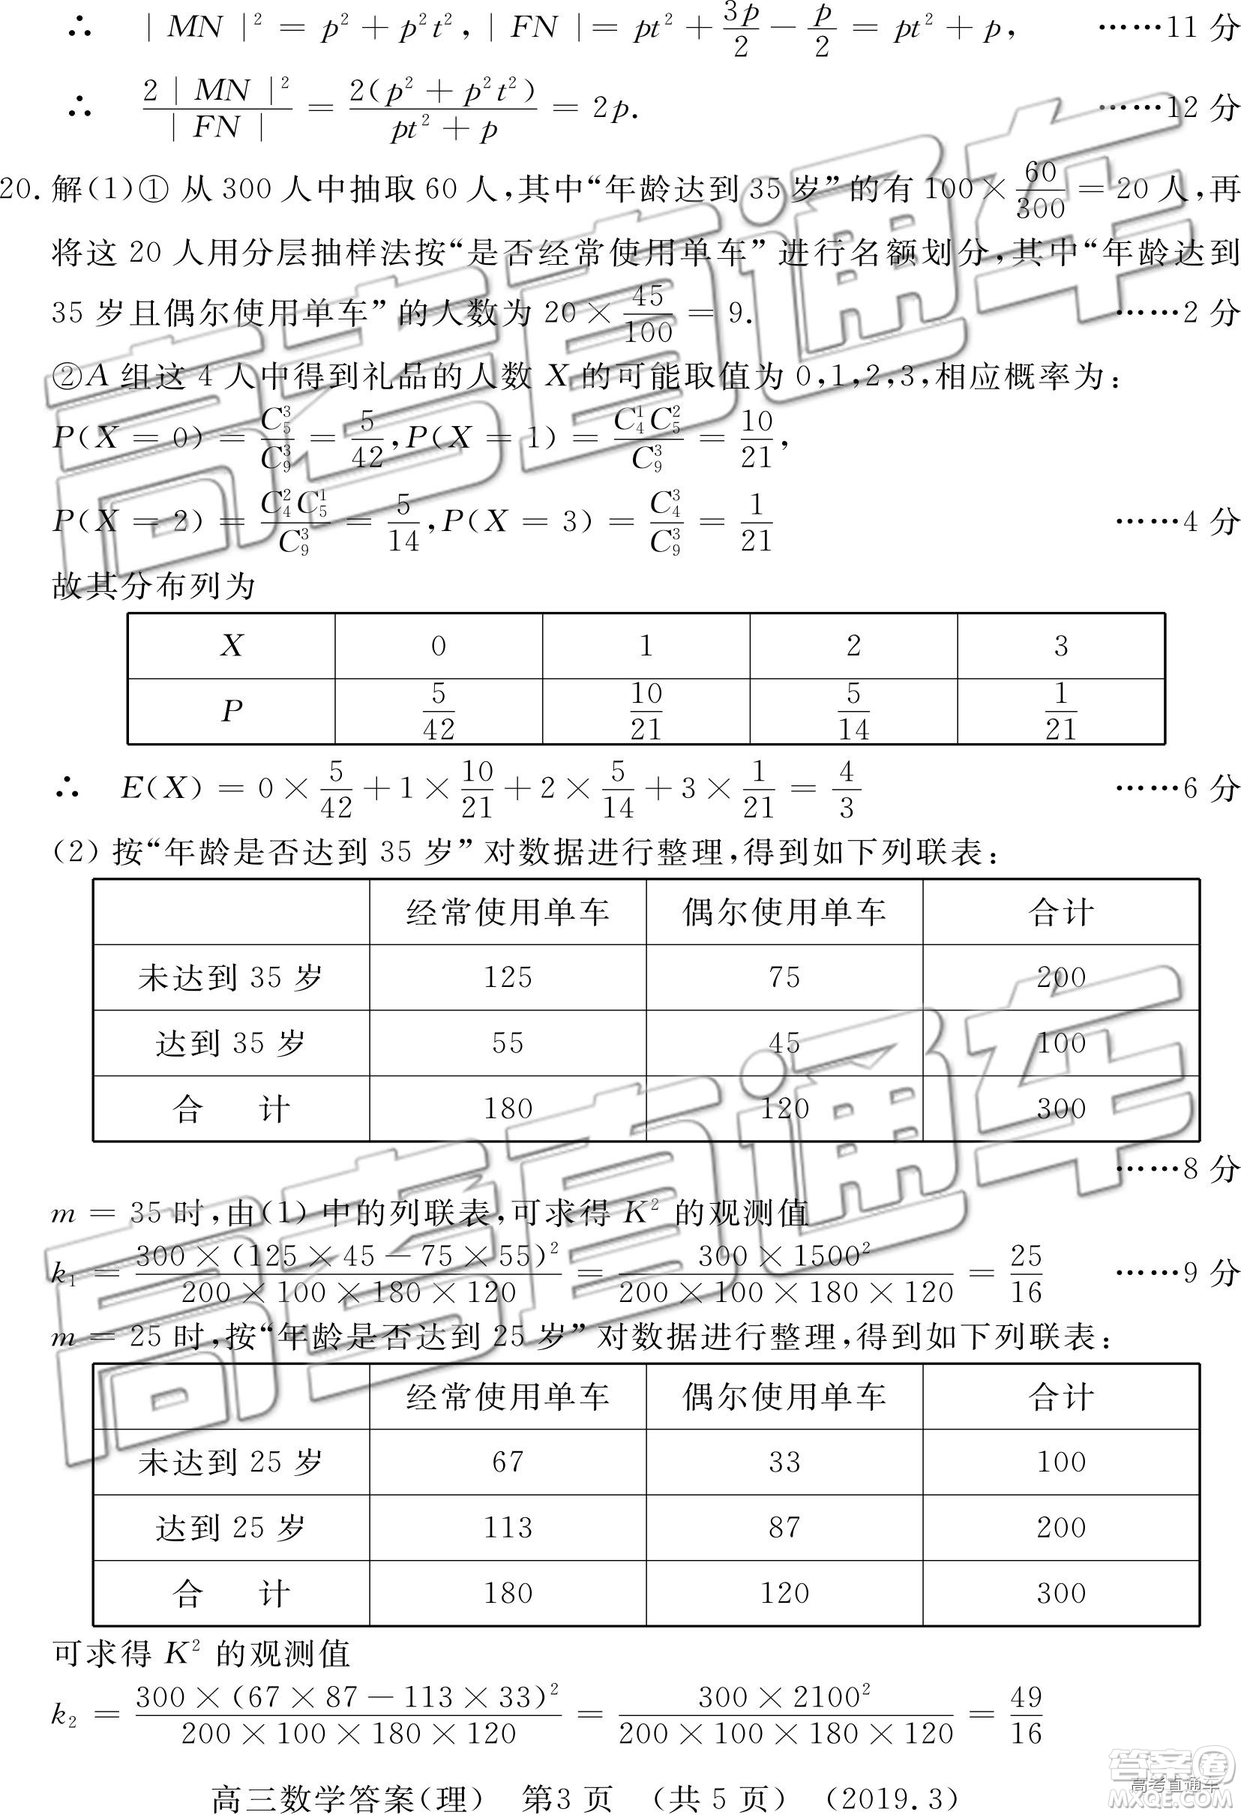 ∴ |MN|² = p² + p²t², |FN| = pt² + 3p/2 − p/2 = pt² + p, ……11 分
∴ 2|MN|²/|FN| = 2(p² + p²t²)/(pt² + p) = 2p. ……12 分
20. 解(1)① 从 300 人中抽取 60 人,其中“年龄达到 35 岁”的有 100 × 60/300 = 20 人,再
将这 20 人用分层抽样法按“是否经常使用单车”进行名额划分,其中“年龄达到
35 岁且偶尔使用单车”的人数为 20 × 45/100 = 9. ……2 分
②A 组这 4 人中得到礼品的人数 X 的可能取值为 0,1,2,3,相应概率为:
P(X = 0) = C₅³/C₉³ = 5/42, P(X = 1) = C₄¹C₅²/C₉³ = 10/21,
P(X = 2) = C₄²C₅¹/C₉³ = 5/14, P(X = 3) = C₄³/C₉³ = 1/21 ……4 分
故其分布列为
X 0 1 2 3
P 5/42 10/21 5/14 1/21
∴ E(X) = 0 × 5/42 + 1 × 10/21 + 2 × 5/14 + 3 × 1/21 = 4/3 ……6 分
(2) 按“年龄是否达到 35 岁”对数据进行整理,得到如下列联表:
经常使用单车 偶尔使用单车 合计
未达到 35 岁 125 75 200
达到 35 岁 55 45 100
合 计 180 120 300
……8 分
m = 35 时,由(1) 中的列联表,可求得 K² 的观测值
k₁ = 300 × (125 × 45 − 75 × 55)²/(200 × 100 × 180 × 120) = 300 × 1500²/(200 × 100 × 180 × 120) = 25/16 ……9 分
m = 25 时,按“年龄是否达到 25 岁”对数据进行整理,得到如下列联表:
经常使用单车 偶尔使用单车 合计
未达到 25 岁 67 33 100
达到 25 岁 113 87 200
合 计 180 120 300
可求得 K² 的观测值
k₂ = 300 × (67 × 87 − 113 × 33)²/(200 × 100 × 180 × 120) = 300 × 2100²/(200 × 100 × 180 × 120) = 49/16
高三数学答案(理) 第3 页 (共 5 页) (2019.3)
高考直通车
高考直通车
答案圈
高考直通车
MXQE.COM